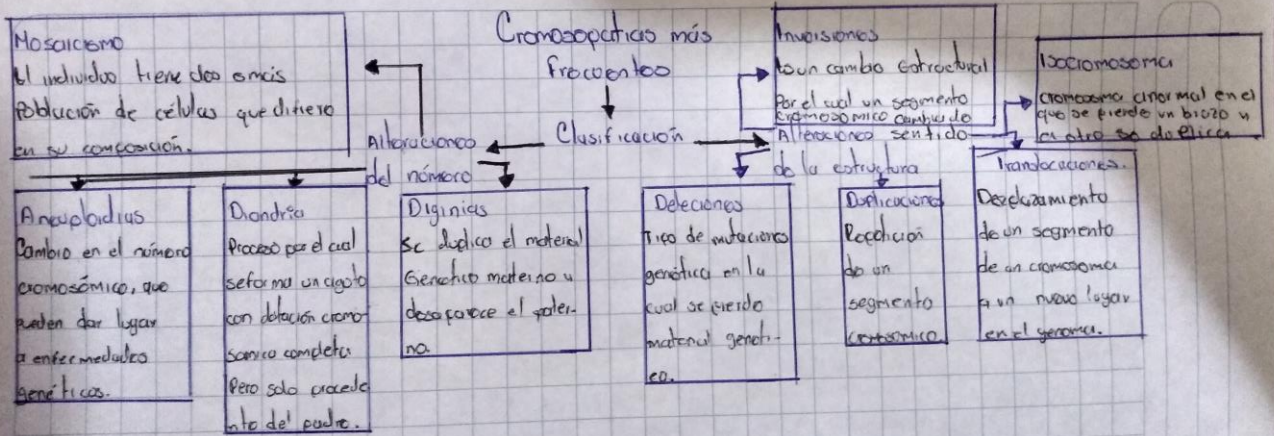 Cromosopatias más
frecuentes
Clasificación
Alteraciones
del número
Mosaicismo
El individuo tiene dos o más
Población de células que difiere
en su composición.
Aneuploidias
Cambio en el número
cromosómico, que
pueden dar lugar
a enfermedades
genéticas.
Diandria
Proceso por el cual
se forma un cigoto
con dotación cromo
somica completa
Pero solo procede
nte del padre.
Diginias
Se duplica el material
Genetico materno y
desaparece el pater-
no.
Alteraciones
de la estructura
Inversiones
Es un cambio estructural
Por el cual un segmento
cromosómico cambia de
sentido
Isocromosoma
cromosoma anormal en el
que se pierde un brazo y
el otro se duplica
Deleciones
Tipo de mutaciones
genética en la
cual se pierde
material genéti-
co.
Duplicaciones
Repetición
de un
segmento
cromosomico.
Translocaciones.
Desplazamiento
de un segmento
de un cromosoma
a un nuevo lugar
en el genoma.